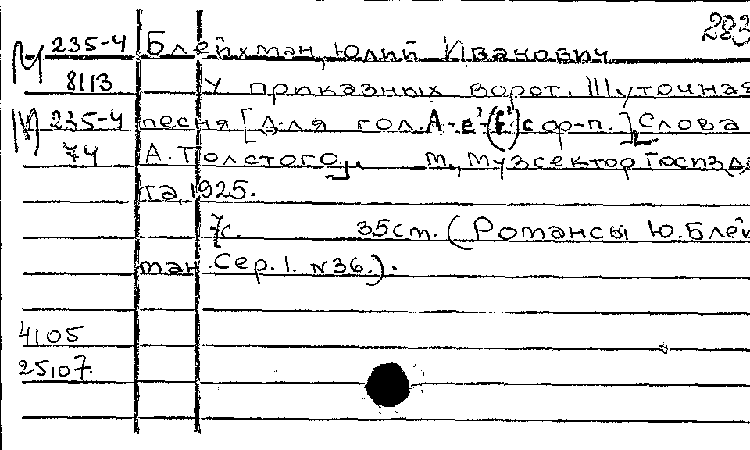 283
М 235-4 Блейхман, Юлий Иванович
8113 У приказных ворот. Шуточная
М 235-4 песня [Для гол. А-е²-(f²) с ф-п.] Слова
74 А. Толстого, М., Музсектор Госизда
та, 1925.
7с. 35см. (Романсы Ю. Блей
ман. Сер. 1. N36.).
4105
25107